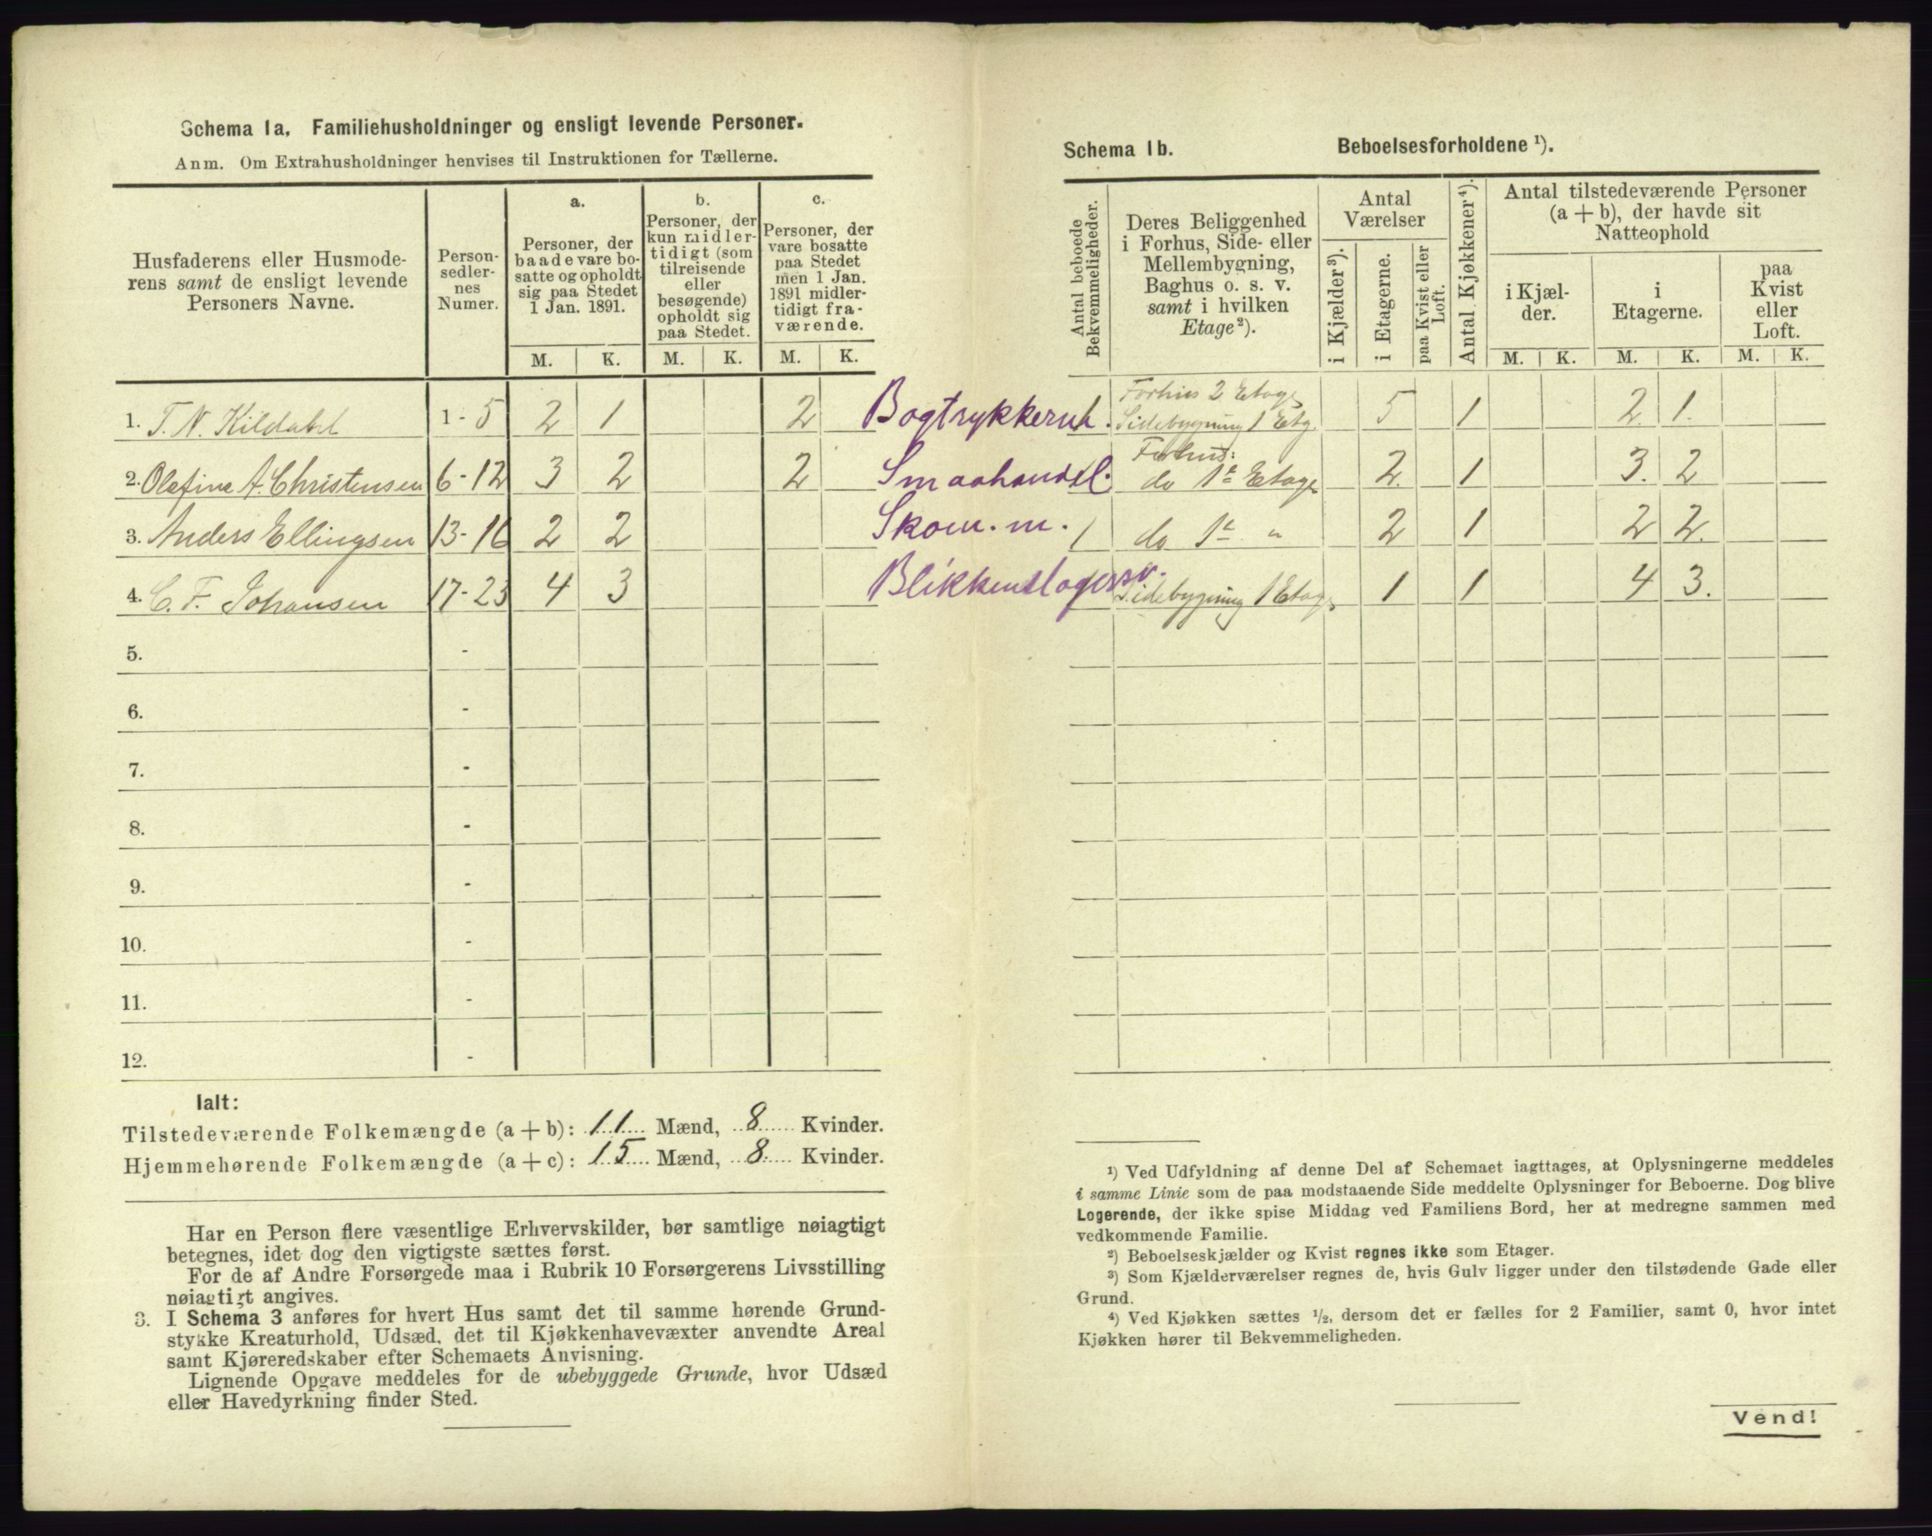 Schema 1a. Familiehusholdninger og ensligt levende Personer.
Anm. Om Extrahusholdninger henvises til Instruktionen for Tællerne.
Husfaderens eller Husmode-
rens samt de ensligt levende
Personers Navne.
Person-
sedler-
nes
Numer.
a.
Personer, der
baade vare bo-
satte og opholdt
sig paa Stedet
1 Jan. 1891.
b.
Personer, der
kun midler-
tidigt (som
tilreisende
eller
besøgende)
opholdt sig
paa Stedet.
c.
Personer, der
vare bosatte
paa Stedet
men 1 Jan.
1891 midler-
tidigt fra-
værende.
M. K. M. K. M. K.
1. T. N. Kildahl 1-5 2 1 2
2. Olefine A. Christensen 6-12 3 2 2
3. Anders Ellingsen 13-16 2 2
4. C. F. Johansen 17-23 4 3
5. -
6. -
7. -
8. -
9. -
10. -
11. -
12. -
Ialt:
Tilstedeværende Folkemængde (a + b): 11 Mænd, 8 Kvinder.
Hjemmehørende Folkemængde (a + c): 15 Mænd, 8 Kvinder.
Har en Person flere væsentlige Erhvervskilder, bør samtlige nøiagtigt
betegnes, idet dog den vigtigste sættes først.
For de af Andre Forsørgede maa i Rubrik 10 Forsørgerens Livsstilling
nøiagtigt angives.
3. I Schema 3 anføres for hvert Hus samt det til samme hørende Grund-
stykke Kreaturhold, Udsæd, det til Kjøkkenhavevæxter anvendte Areal
samt Kjøreredskaber efter Schemaets Anvisning.
Lignende Opgave meddeles for de ubebyggede Grunde, hvor Udsæd
eller Havedyrkning finder Sted.
Schema 1b. Beboelsesforholdene ¹).
Antal beboede
Bekvemmeligheder.
Deres Beliggenhed
i Forhus, Side- eller
Mellembygning,
Baghus o. s. v.
samt i hvilken
Etage²).
Antal
Værelser
i Kjælder³).
i Etagerne.
paa Kvist eller
Loft.
Antal Kjøkkener⁴).
Antal tilstedeværende Personer
(a + b), der havde sit
Natteophold
i Kjæl-
der.
i
Etagerne.
paa
Kvist
eller
Loft.
M. K. M. K. M. K.
Forhus 2 Etage
Bogtrykkeri 1. Sidebygning 1 Etg. 5 1 2. 1.
Forhus:
Smaahandel. do 1ᵉ Etage 2. 1 3. 2
Skom. m. 1 do 1ᵉ " 2 1 2 2.
Blikkenslagersv. Sidebygning 1 Etage 1 1 4 3.
¹) Ved Udfyldning af denne Del af Schemaet iagttages, at Oplysningerne meddeles
i samme Linie som de paa modstaaende Side meddelte Oplysninger for Beboerne. Dog blive
Logerende, der ikke spise Middag ved Familiens Bord, her at medregne sammen med
vedkommende Familie.
²) Beboelseskjælder og Kvist regnes ikke som Etager.
³) Som Kjælderværelser regnes de, hvis Gulv ligger under den tilstødende Gade eller
Grund.
⁴) Ved Kjøkken sættes ½, dersom det er fælles for 2 Familier, samt 0, hvor intet
Kjøkken hører til Bekvemmeligheden.
Vend!